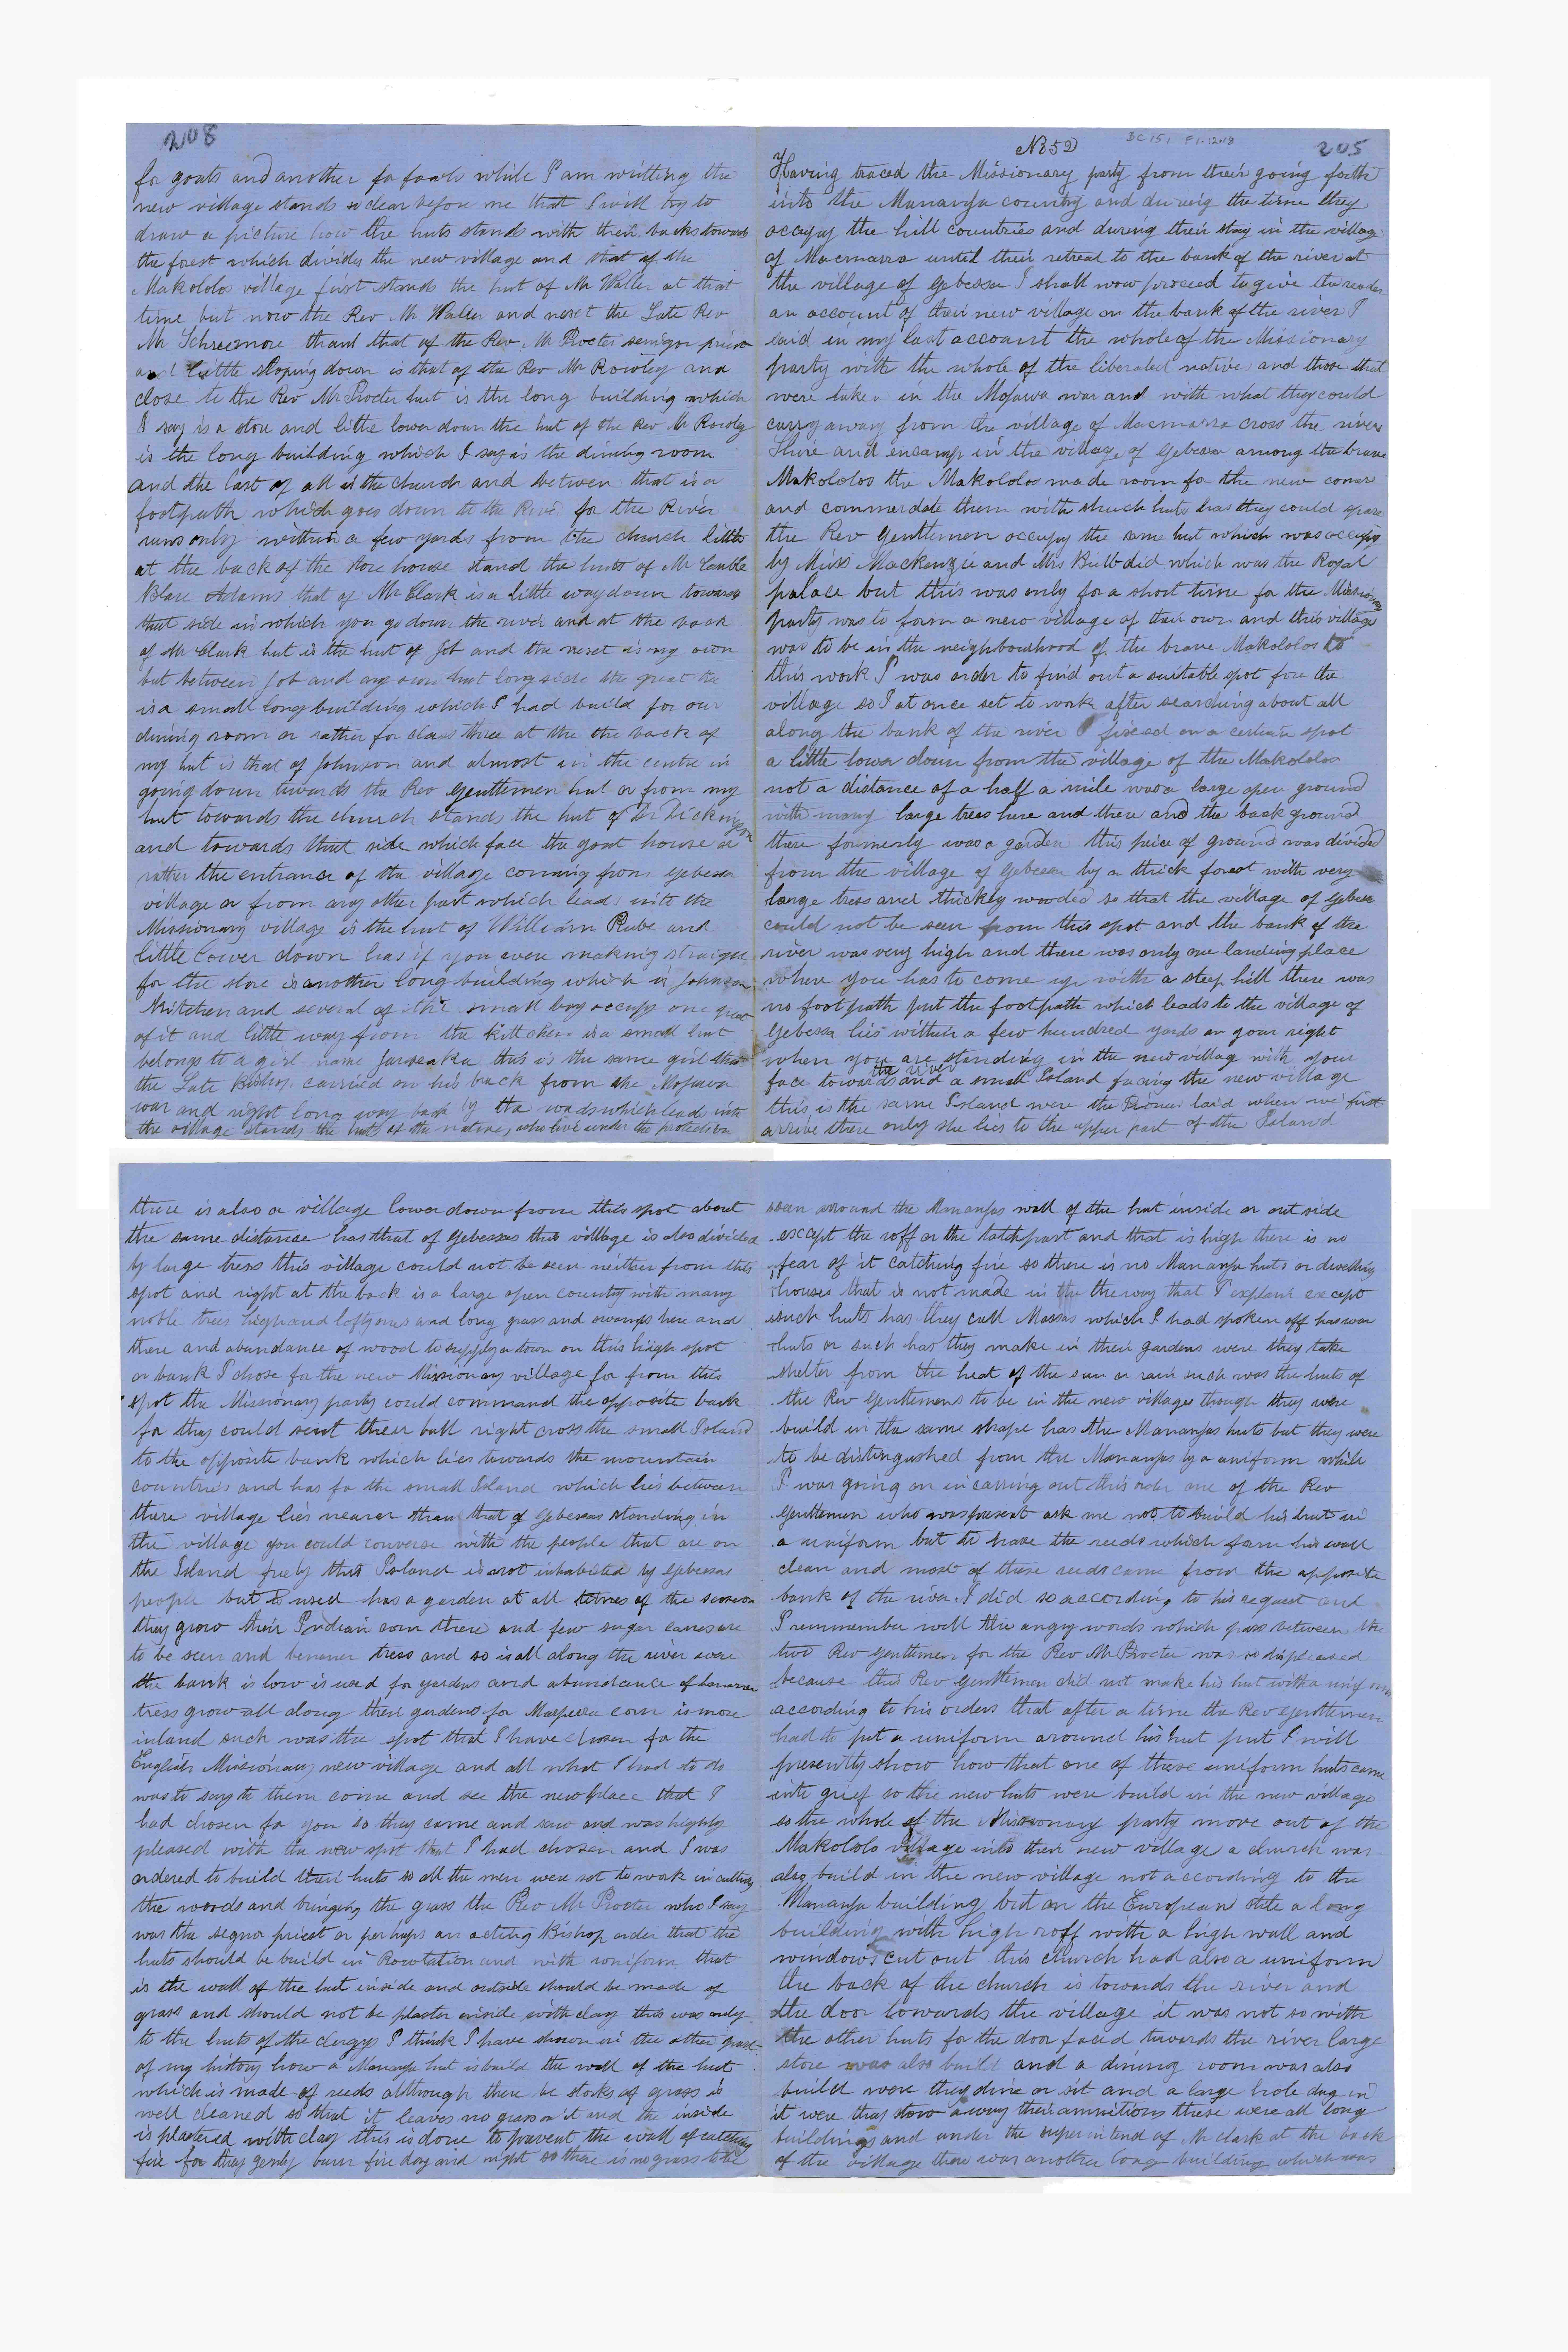 BC 151 F1-1208
No 52
205
Having traced the Missionary party from their going forth
into the Mananja country and during the time they
occupy the hill countries and during their stay in the village
of Macmarra until their retreat to the bank of the river at
the village of Gebessa I shall now proceed to give the reader
an account of their new village on the bank of the river I
said in my last account the whole of the Missionary
party with the whole of the liberated natives and those that
were taken in the Mojawa war and with what they could
carry away from the village of Macmarra cross the river
Shire and encamp in the village of Gebessa among the brave
Makololos the Makololos made room for the new comer
and commerdate them with shuch huts has they could spare
the Rev Gentlemen occupy the same hut which was occupy
by Miss Mackenzie and Mrs Burrup did which was the Royal
palace but this was only for a short time for the Missionary
party was to form a new village of their own and this village
was to be in the neighbourhood of the brave Makololos to
this work I was order to find out a suitable spot for the
village so I at once set to work after searching about all
along the bank of the river I fixed on a certain spot
a little lower down from the village of the Makololos
not a distance of a half a mile was a large open ground
with many large trees here and there and the back ground
there formerly was a garden this peice of ground was divided
from the village of Gebessa by a thick forest with very
large tress and thickly wooded so that the village of Gebessa
could not be seen from this spot and the bank of the
river was very high and there was only one landing place
where you has to come up with a steep hill there was
no footpath put the footpath which leads to the village of
Gebessa lies within a few hundred yards on your right
when you are standing in the new village with your
face towards the river and a small Island facing the new village
this is the same Island were the Pioneer laid when we first
arrive there only she lies to the upper part of the Island
there is also a village lower down from this spot about
the same distance has that of Gebessas this village is also divided
by large tress this village could not be seen neither from this
spot and right at the back is a large open country with many
noble trees high and lofty ones and long grass and swamps here and
there and abundance of wood to supply a town on this high spot
or bank I chose for the new Missionary village for from this
spot the Missionary party could command the opposite bank
for they could sent their ball right cross the small Island
to the opposite bank which lies towards the mountain
countries and has for the small Island which lies between
there village lies nearer than that of Gebessas standing in
the village you could converse with the people that are on
the Island freely this Island is not inhabited by Gebessas
people but is used has a garden at all times of the season
they grow their Indian corn there and few sugar canes are
to be seen and benener tress and so is all along the river were
the bank is low is used for gardens and abundance of benener
tress grow all along their gardens for Mapeera corn is more
inland such was the spot that I have chosen for the
English Missionary new village and all what I had to do
was to say to them come and see the new place that I
had chosen for you so they came and saw and was highly
pleased with the new spot that I had chosen and I was
ordered to build their huts so all the men were set to work in cutting
the woods and bringing the grass the Rev Mr Procter who I say
was the segnor priest or perhaps an acting Bishop order that the
huts should be build in Rowtation and with uniform that
is the wall of the hut inside and outside should be made of
grass and should not be plaster inside with clay this was only
to the huts of the clergy I think I have shown in the other part
of my history how a Mananja hut is build the wall of the hut
which is made of reeds although there be storks of grass is
well cleaned so that it leaves no grass on it and the inside
is plastered with clay this is done to prevent the wall of catching
fire for they genly burn fire day and night so there is no grass to be
seen around the Mananjas wall of the hut inside or out side
except the roff or the tatch part and that is high there is no
fear of it catching fire so there is no Mananja huts or dwelling
houses that is not made in the the way that I explain except
such huts has they call Massas which I had spoken off has war
huts or such has they make in their gardens were they take
shelter from the heat of the sun or rain such was the huts of
the Rev Gentlemens to be in the new village though they were
build in the same shape has the Mananjas huts but they were
to be distingushed from the Mananjas by a uniform while
I was going on in carring out this order one of the Rev
Gentlemen who was present ask me not to build his hut in
a uniform but to have the reeds which form his wall
clean and most of these reeds came from the opposite
bank of the river I did so according to his request and
I remmember well the angry words which pass between the
two Rev Gentlemen for the Rev Mr Procter was so displeased
because this Rev Gentlemen did not make his hut with a uniform
according to his orders that after a time the Rev Gentlemen
had to put a uniform around his hut put I will
presently show how that one of these uniform huts came
into grief so the new huts were build in the new village
so the whole of the Missionary party move out of the
Makololo village into their new village a church was
also build in the new village not according to the
Mananja building but on the European stile a long
building with high roff with a high wall and
windows cut out this church had also a uniform
the back of the church is towards the river and
the door towards the village it was not so with
the other huts for the door faced towards the river large
store was also build and a dining room was also
build were they dine or sit and a large hole dug in
it were they stow away their ammitions these were all long
buildings and under the superintend of Mr Clark at the back
of the village there was another long building which was
208
for goats and another for fowls while I am writting the
new village stands so clear before me that I will try to
draw a picture how the huts stands with their backs towards
the forest which divides the new village and that of the
Makololos village first stands the hut of Mr Waller at that
time but now the Rev Mr Waller and nexet the Late Rev
Mr Schreemore thand that of the Rev Mr Procter senigor priest
and little sloping down is that of the Rev Mr Rowley and
close to the Rev Mr Procter hut is the long building which
I say is a store and little lower down the hut of the Rev Mr Rowley
is the long building which I say is the dining room
and the last of all is the church and between that is a
footpath which goes down to the River for the River
runs only within a few yards from the church little
at the back of the store house stand the huts of Mr Gamble
Blair Adams that of Mr Clark is a little way down towards
that side in which you go down the river and at the back
of Mr Clark hut is the hut of Job and the nexet is my own
but between Job and my own hut long side the great tree
is a small long building which I had build for our
dining room or rather for class three at the the back of
my hut is that of Johnson and almost in the centre in
going down towards the Rev Gentlemen hut or from my
hut towards the church stands the hut of Dr Dickinson
and towards that side which face the goat house or
rather the entrance of the village coming from Gebessa
village or from any other part which leads into the
Missionary village is the hut of William Rube and
little lower down has if you were making straight
for the store is another long building which is Johnson
kitchen and several of the small boy occupy one part
of it and little way from the kittchen is a small hut
belongs to a girl name Jarseaka this is the same girl that
the Late Bishop carried on his back from the Mojawa
war and right long way back by the woods which leads into
the village stands the huts of the natives who live under the protection